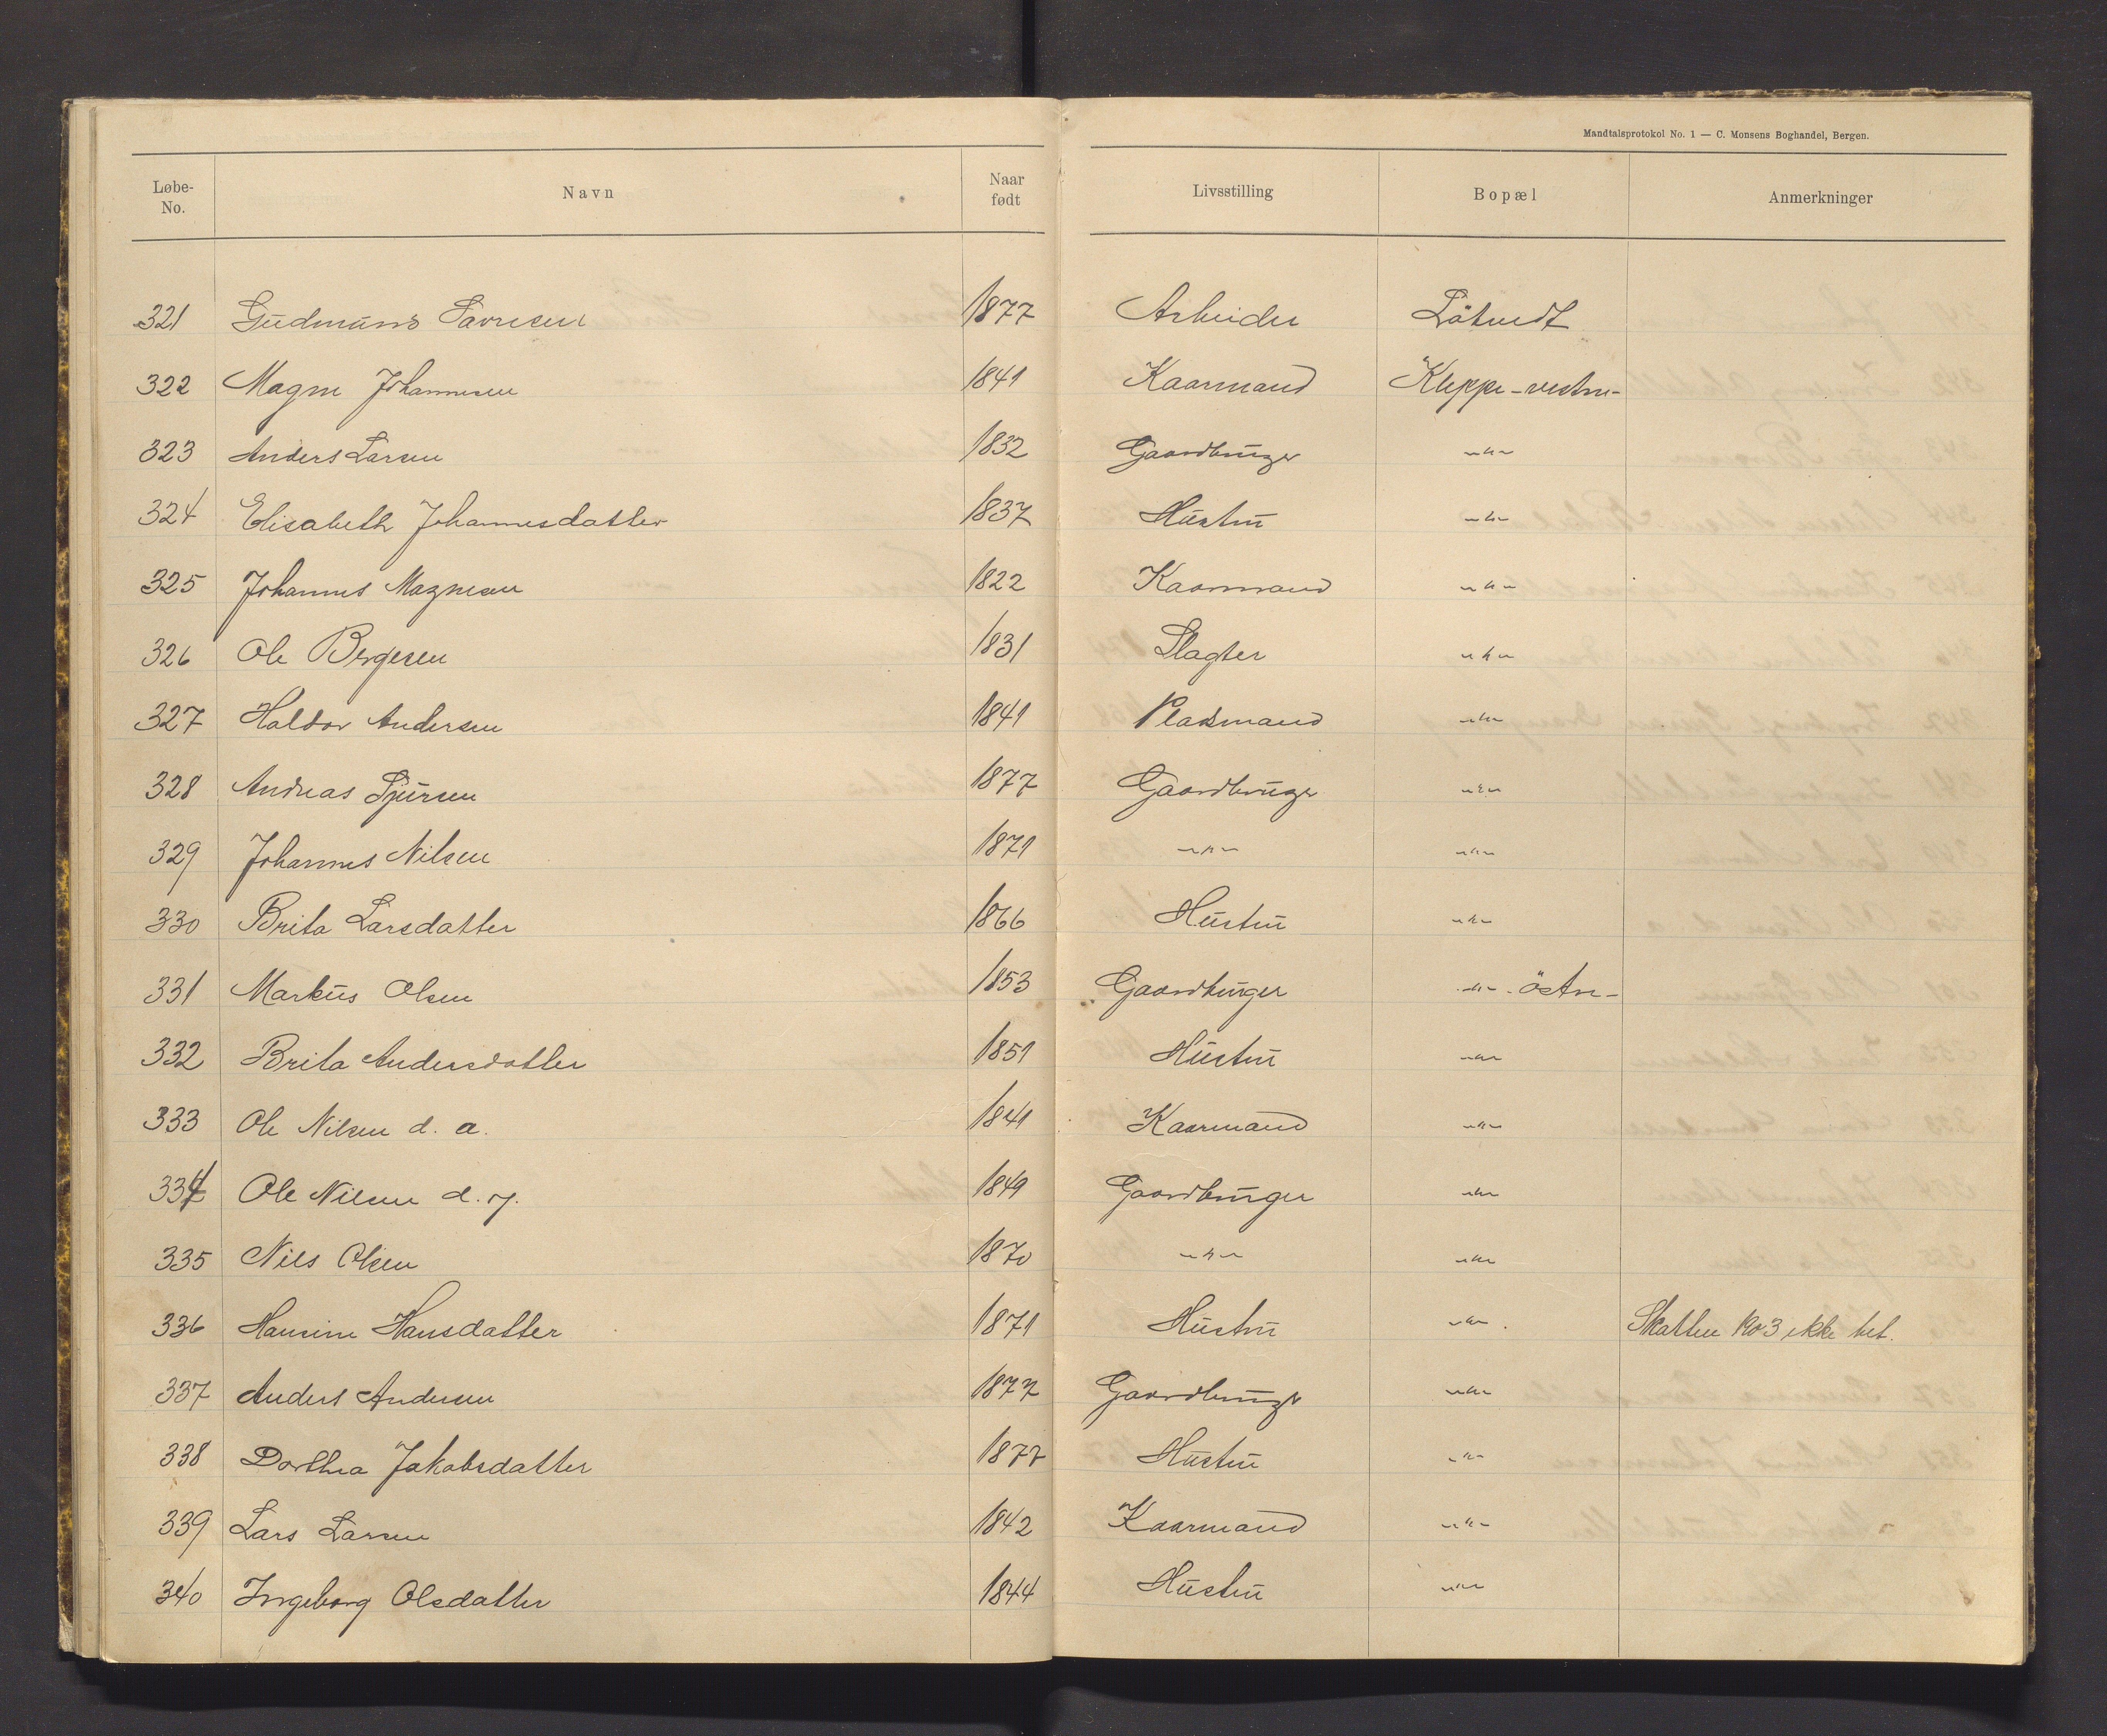 Mandtalsprotokol No. 1 — C. Monsens Boghandel, Bergen.
Løbe-No. Navn Naar født Livsstilling Bopæl Anmerkninger
321 Gudmund Lavresen 1877 Arbeider Lötvedt
322 Magne Johannesen 1841 Kaarmand Kleppe - vestre -
323 Anders Larsen 1832 Gaardbruger -"-
324 Elisabeth Johannesdatter 1837 Hustru -"-
325 Johannes Magnesen 1822 Kaarmand -"-
326 Ole Bergesen 1831 Slagter -"-
327 Haldor Andersen 1841 Pladsmand -"-
328 Andreas Sjursen 1877 Gaardbruger -"-
329 Johannes Nilsen 1871 -"- -"-
330 Brita Larsdatter 1866 Hustru -"-
331 Markus Olsen 1853 Gaardbruger -"- östre -
332 Brita Andersdatter 1851 Hustru -"-
333 Ole Nilsen d. a. 1841 Kaarmand -"-
334 Ole Nilsen d. y. 1849 Gaardbruger -"-
335 Nils Olsen 1870 -"- -"-
336 Hansine Hansdatter 1871 Hustru -"- Skatten 1903 ikke bet.
337 Anders Andersen 1877 Gaardbruger -"-
338 Dorthea Jakobsdatter 1877 Hustru -"-
339 Lars Larsen 1842 Kaarmand -"-
340 Ingeborg Olsdatter 1844 Hustru -"-